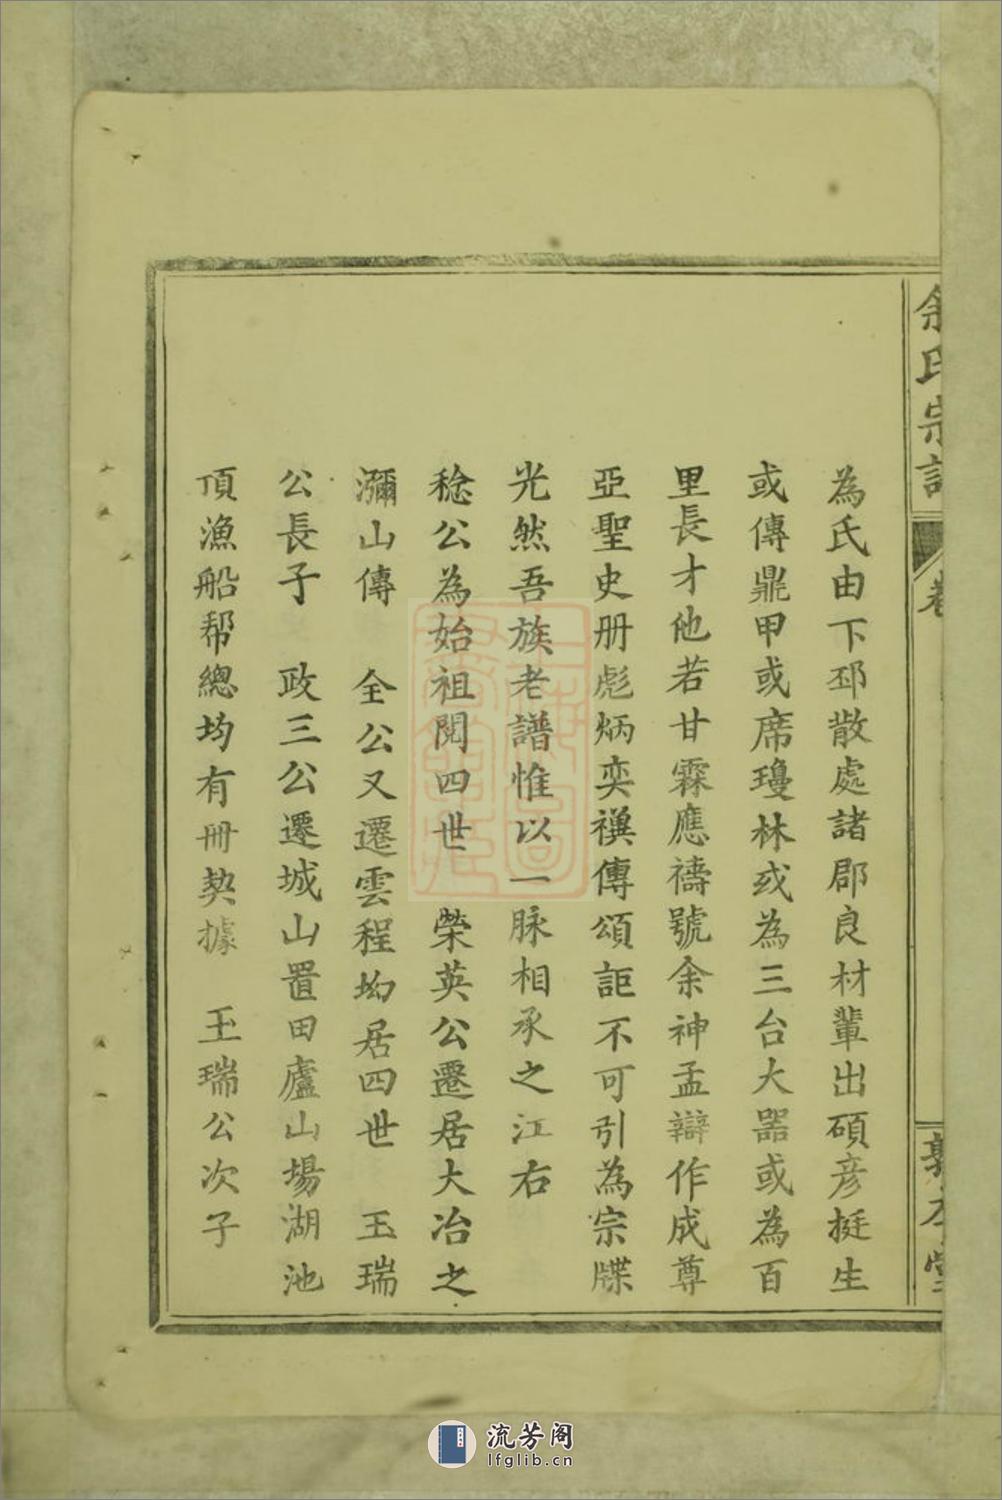 余氏宗譜
卷
為氏由下邳散處諸郡良材輩出碩彦挺生
或傳鼎甲或席瓊林或為三台大器或為百
里長才他若甘霖應禱號余神孟辯作成尊
亞聖史册彪炳奕禩傳頌詎不可引為宗牒
光然吾族老譜惟以一脉相承之江右
稔公為始祖閱四世 榮英公遷居大冶之
瀰山傳 全公又遷雲程坳居四世 玉瑞
公長子 政三公遷城山置田廬山場湖池
頂漁船帮總均有冊契據 玉瑞公次子
流芳阁
lfglib.cn